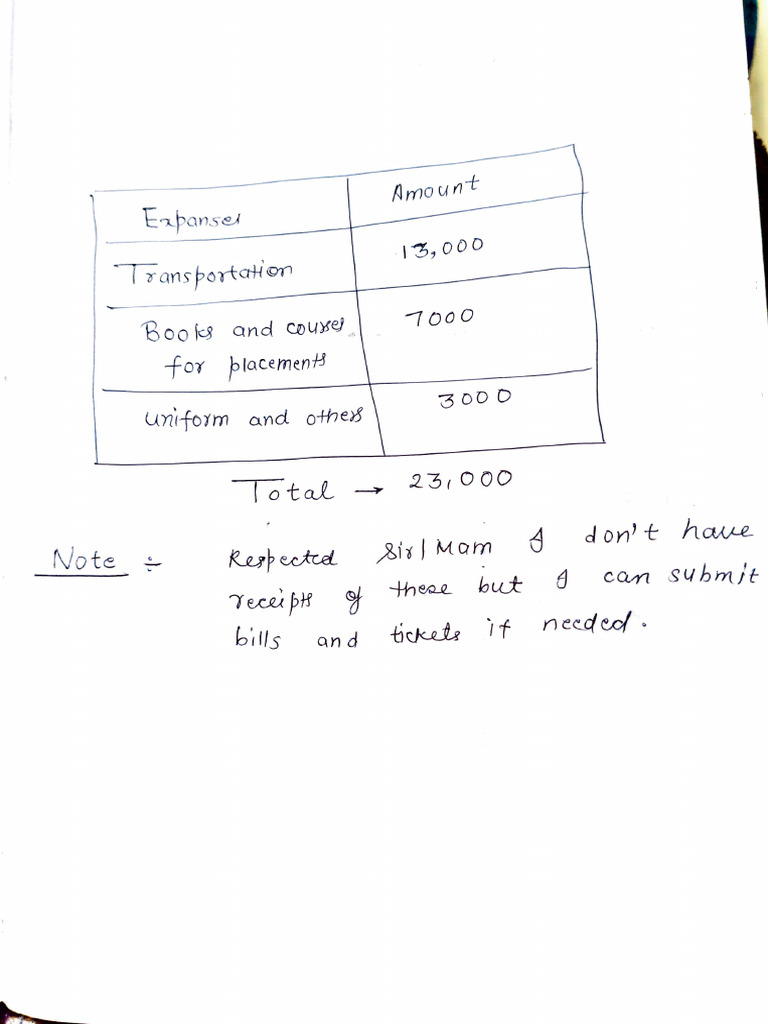 Expanses Amount
Transportation 13,000
Books and courses 7000
for placements
Uniform and others 3000
Total → 23,000
Note ÷ Respected Sir/Mam I don't have
receipts of these but I can submit
bills and tickets if needed.